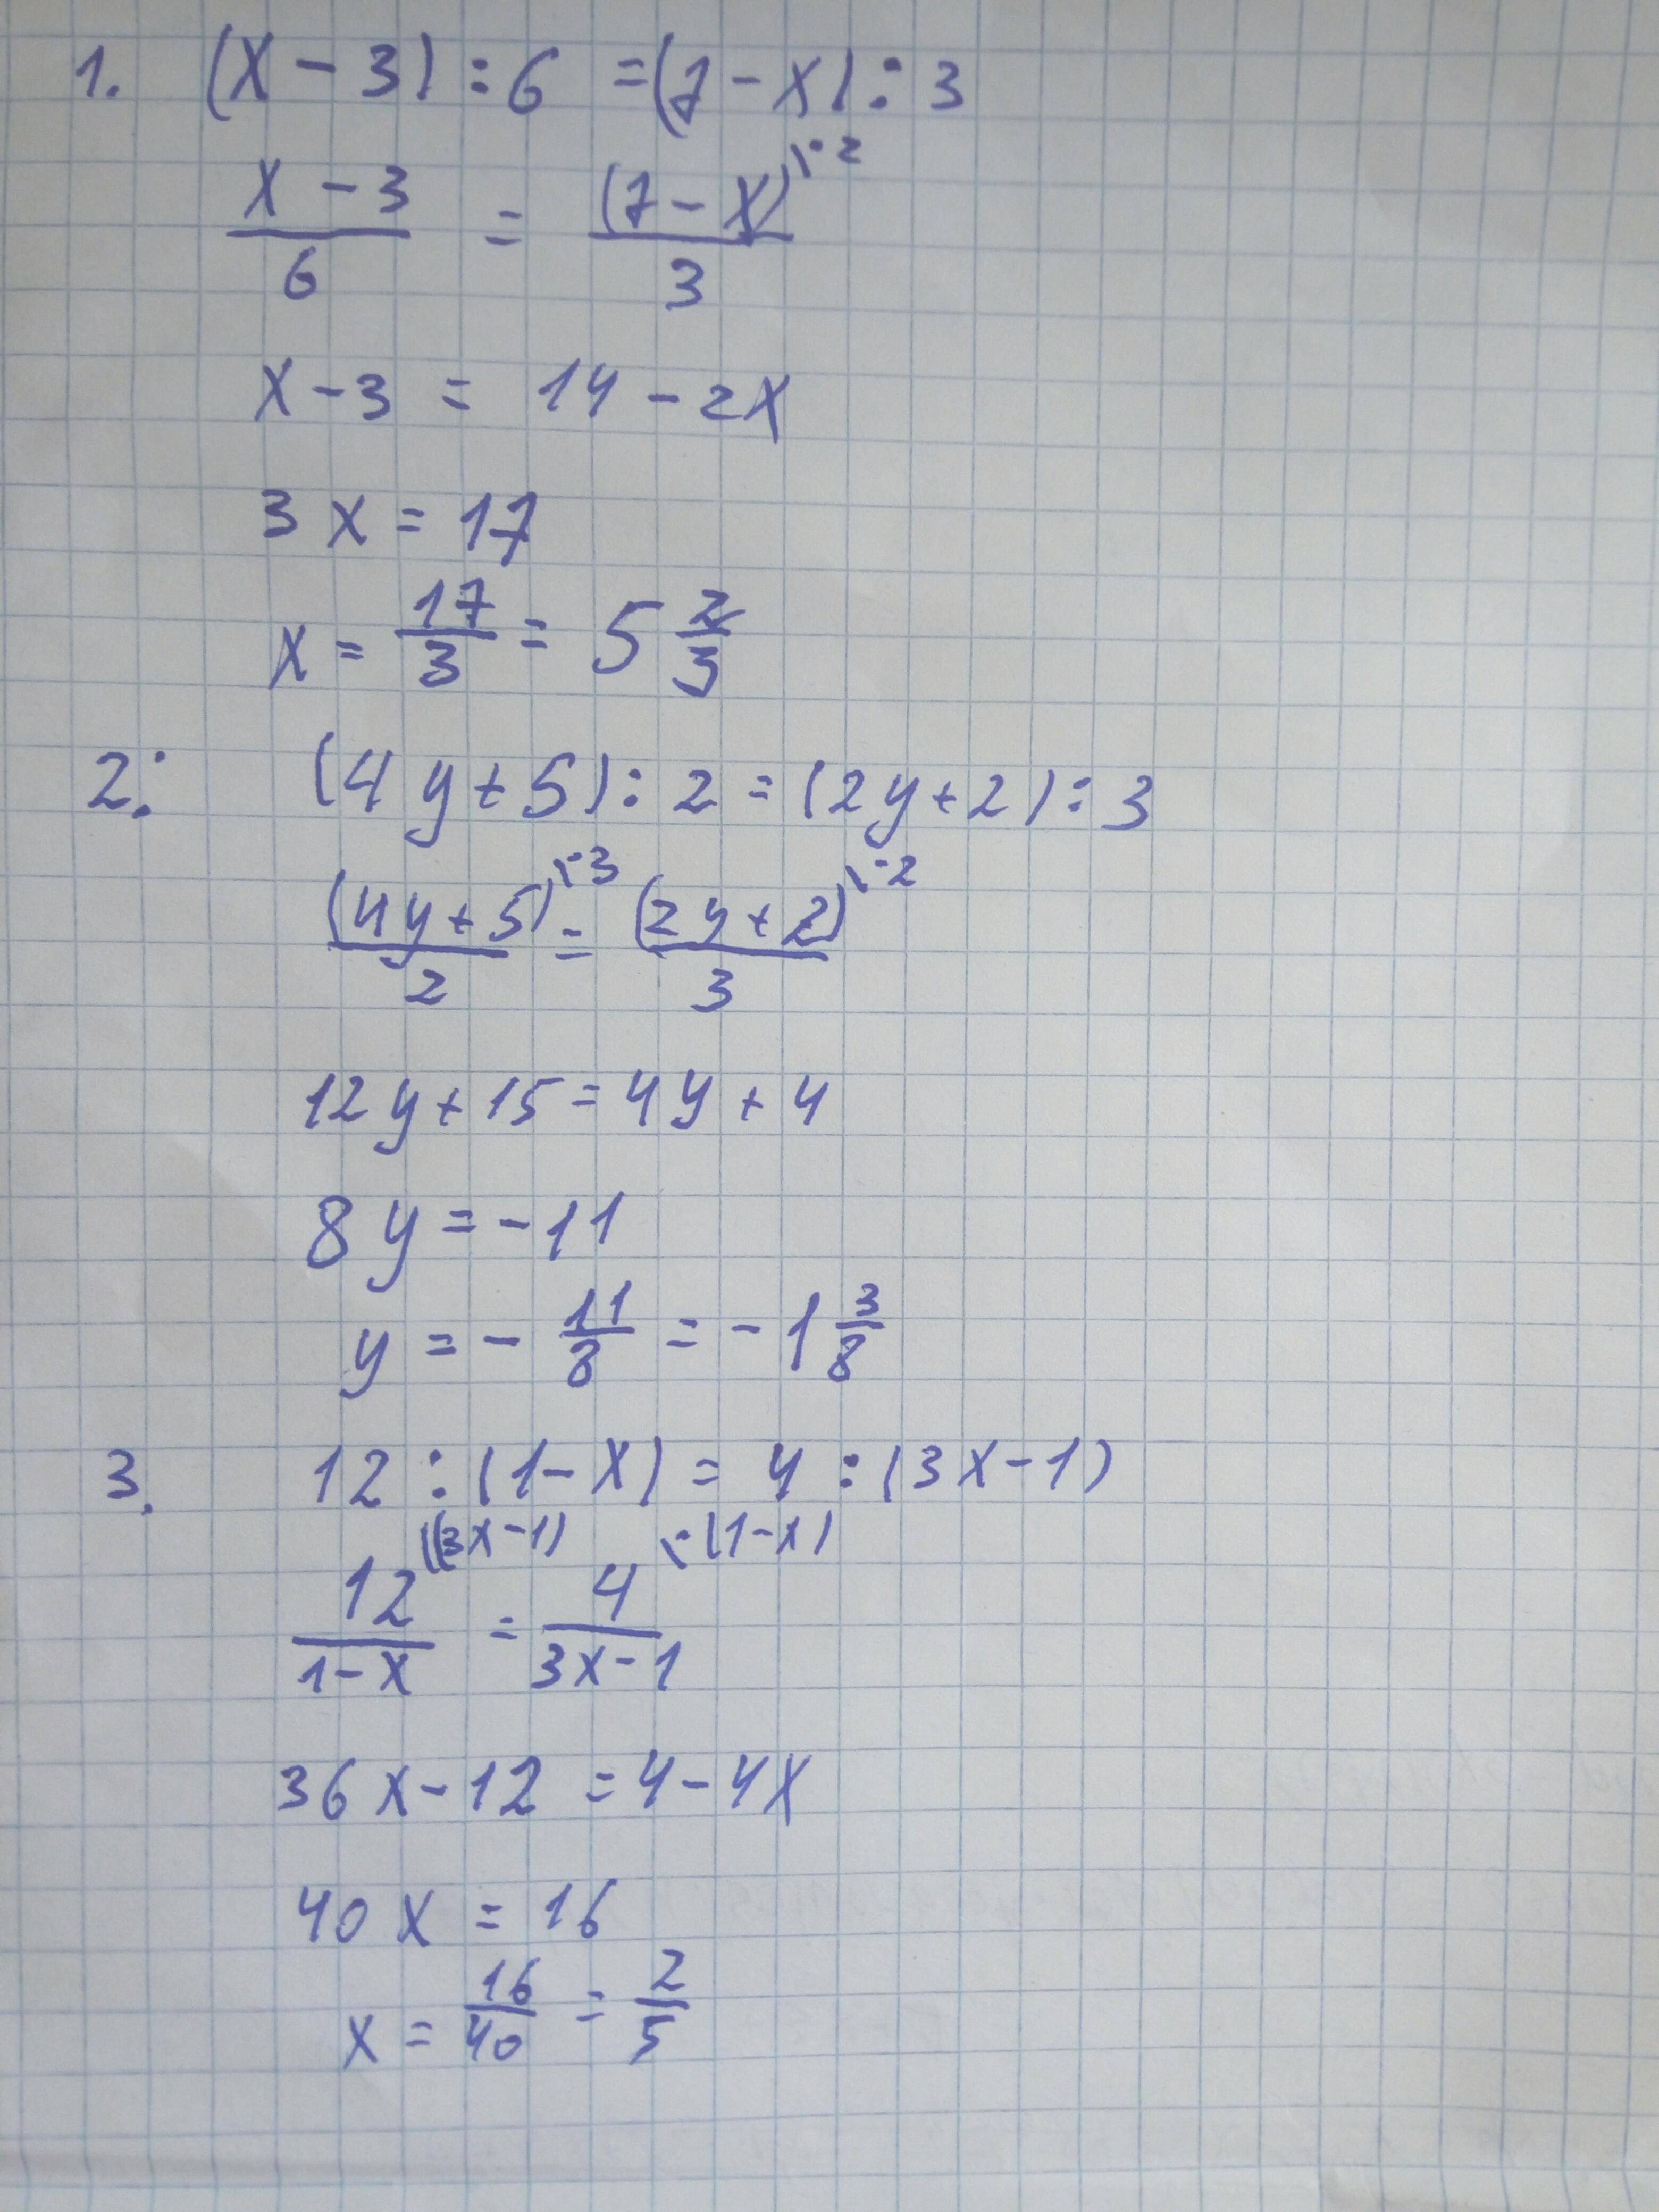 1. (x - 3) : 6 = (7 - x) : 3
(x - 3)/6 = (7 - x)\·2/3
x - 3 = 14 - 2x
3x = 17
x = 17/3 = 5 2/3
2. (4y + 5) : 2 = (2y + 2) : 3
(4y + 5)\·3/2 = (2y + 2)\·2/3
12y + 15 = 4y + 4
8y = -11
y = - 11/8 = -1 3/8
3. 12 : (1 - x) = 4 : (3x - 1)
12\(3x - 1)/(1 - x) = 4\·(1 - x)/(3x - 1)
36x - 12 = 4 - 4x
40x = 16
x = 16/40 = 2/5